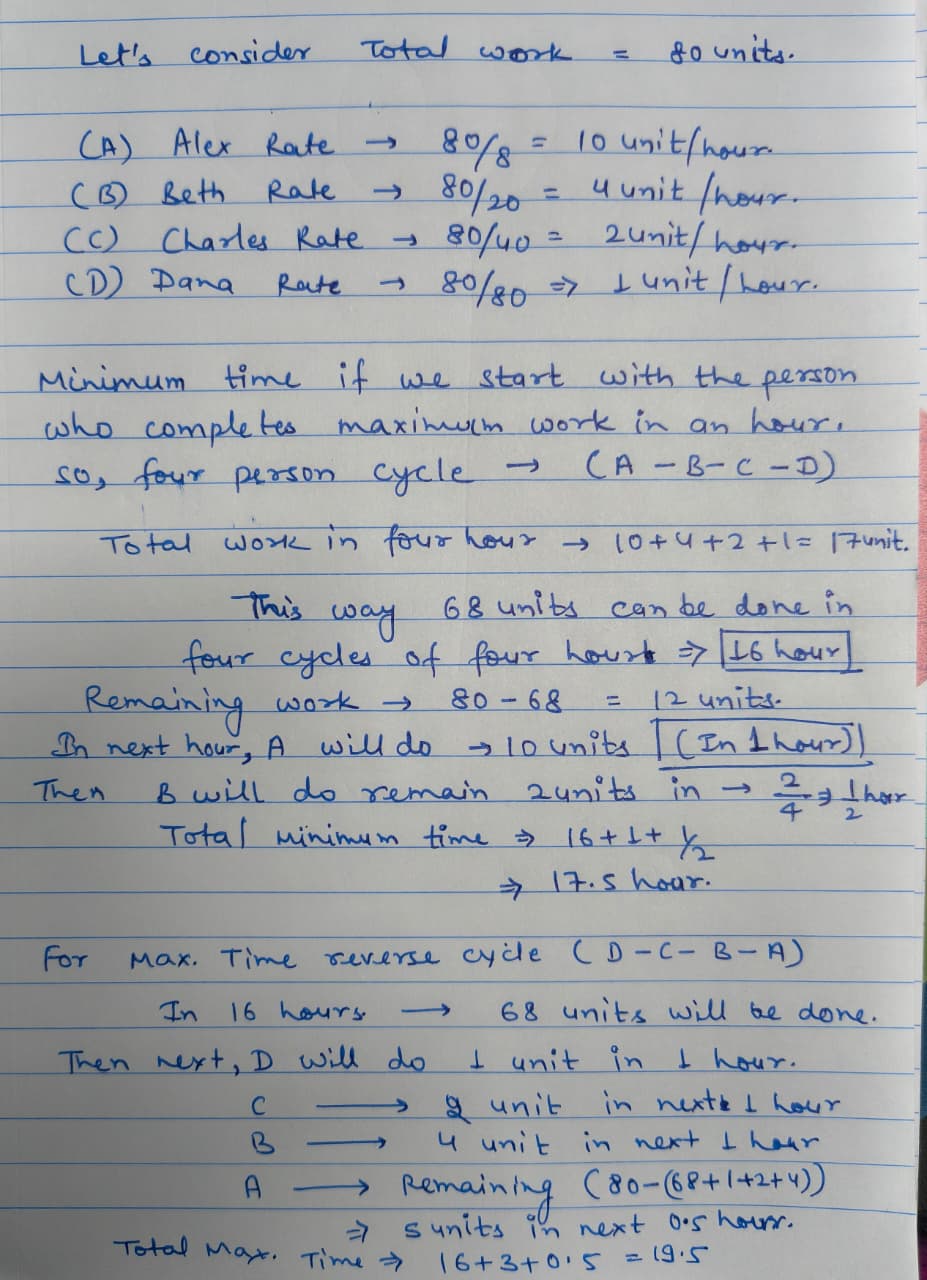 Let's consider Total work = 80 units.
(A) Alex Rate → 80/8 = 10 unit/hour.
(B) Beth Rate → 80/20 = 4 unit/hour.
(C) Charles Rate → 80/40 = 2 unit/hour.
(D) Dana Rate → 80/80 ⇒ 1 unit/hour.
Minimum time if we start with the person
who completes maximum work in an hour.
so, four person cycle → (A - B - C - D)
Total work in four hour → 10+4+2+1 = 17 unit.
This way 68 units can be done in
four cycles of four hours ⇒ 16 hour
Remaining work → 80 - 68 = 12 units.
In next hour, A will do → 10 units (In 1 hour)
Then B will do remain 2 units in → 2/4 ⇒ 1/2 hour
Total minimum time ⇒ 16 + 1 + 1/2
⇒ 17.5 hour.
For Max. Time reverse cycle (D - C - B - A)
In 16 hours → 68 units will be done.
Then next, D will do 1 unit in 1 hour.
C → 2 unit in next 1 hour
B → 4 unit in next 1 hour
A → Remaining (80-(68+1+2+4))
⇒ 5 units in next 0.5 hour.
Total Max. Time ⇒ 16+3+0.5 = 19.5